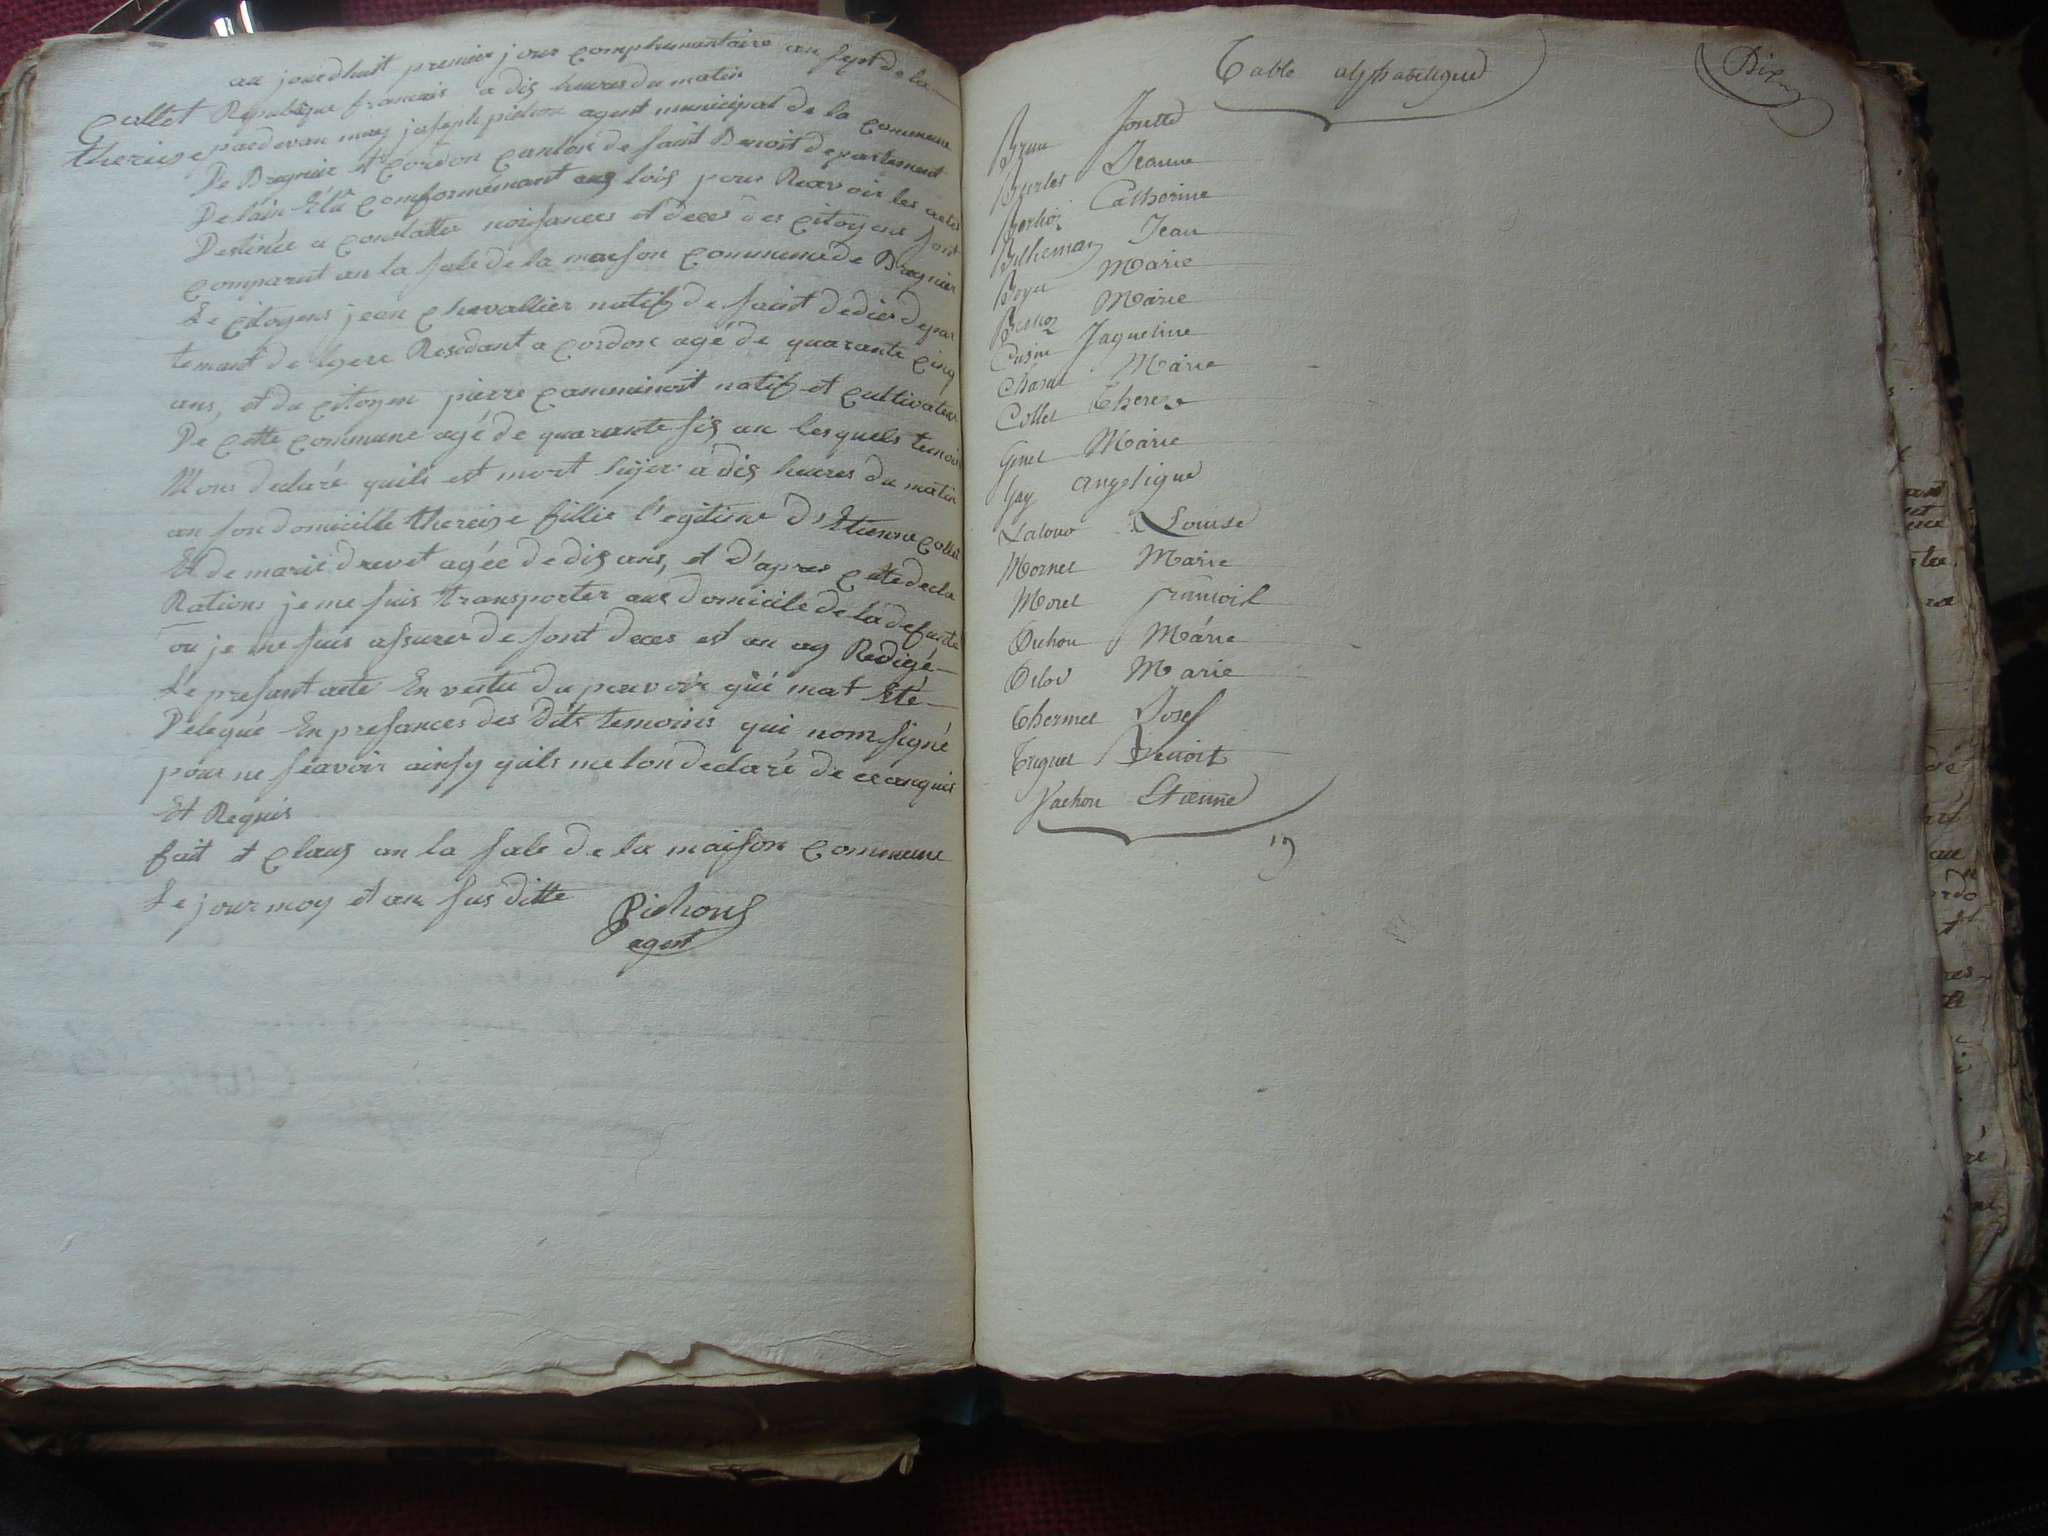 au jourdhuit premier jour complumantaire an sept de la
Collet
thereise
Republique francais a dis heures du matin
pardevan moy joseph pichon agent municipal de la commune
De Bregnier et Cordon canton de Saint Benoit departement
De lain Elû comformémant aux lois pour Recevoir les actes
Destinée a constatter noissances et deces des citoyens sont
comparut an la sale de la maison commune de Bregnier
Le citoyens jean chevallier natif de saint dedier depar
temant de lysere Resedant a cordon agé de quarante cinq
ans, et du citoyen pierre camminoit natif et cultivateur
De cette commune agé de quarante sis an lesquels temoin
Mons declaré quils est mort hyer a dis heures du matin
an son domicille thereize fillie l'egitime d'Etienne collet
Et de marie drevet agée de dis ans, et d'apres cete decla
Rations je me suis transporter aus domicile de la defunte
ou je me suis assurer de sont deces est an ay Redigé
Le presant acte En vertu du pouvoir qui mat Eté
Delegué En presances des dits temoins qui nom signé
pour ne scavoir ainsy quils me lon declaré de ce anquis
Et Requis
fait et claus an la sale de la maison commune
Le jour moy et an sus ditte
Pichons
agent
Table alphabetique
Dix
Brun Josette
Burles Jeanne
Berlioz Catherine
Bilhemaz Jean
Boyer Marie
Marie
Cusin Jaqueline
Marie
Collet Thereze
Genet Marie
Gay Angelique
Latour Louise
Mornet Marie
Moret francois
Ouhon Marie
Marie
Thermet Josef
Triguet Benoit
Vachon Etienne
19